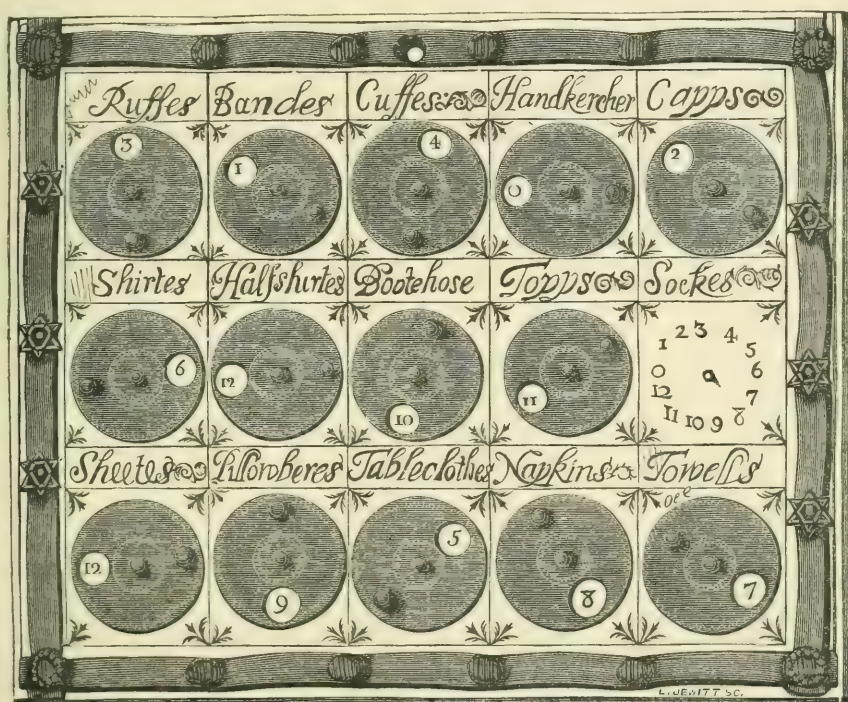 Ruffes Bandes Cuffes Handkercher Capps
3 1 4 0 2
Shirtes Halfshirtes Bootehose Topps Sockes
6 12 10 11
1 2 3 4 5 6 7 8 9 10 11 12 0
Sheetes Pillowberes Tableclothes Napkins Towells
12 9 5 8 7
L. JEWITT SC.